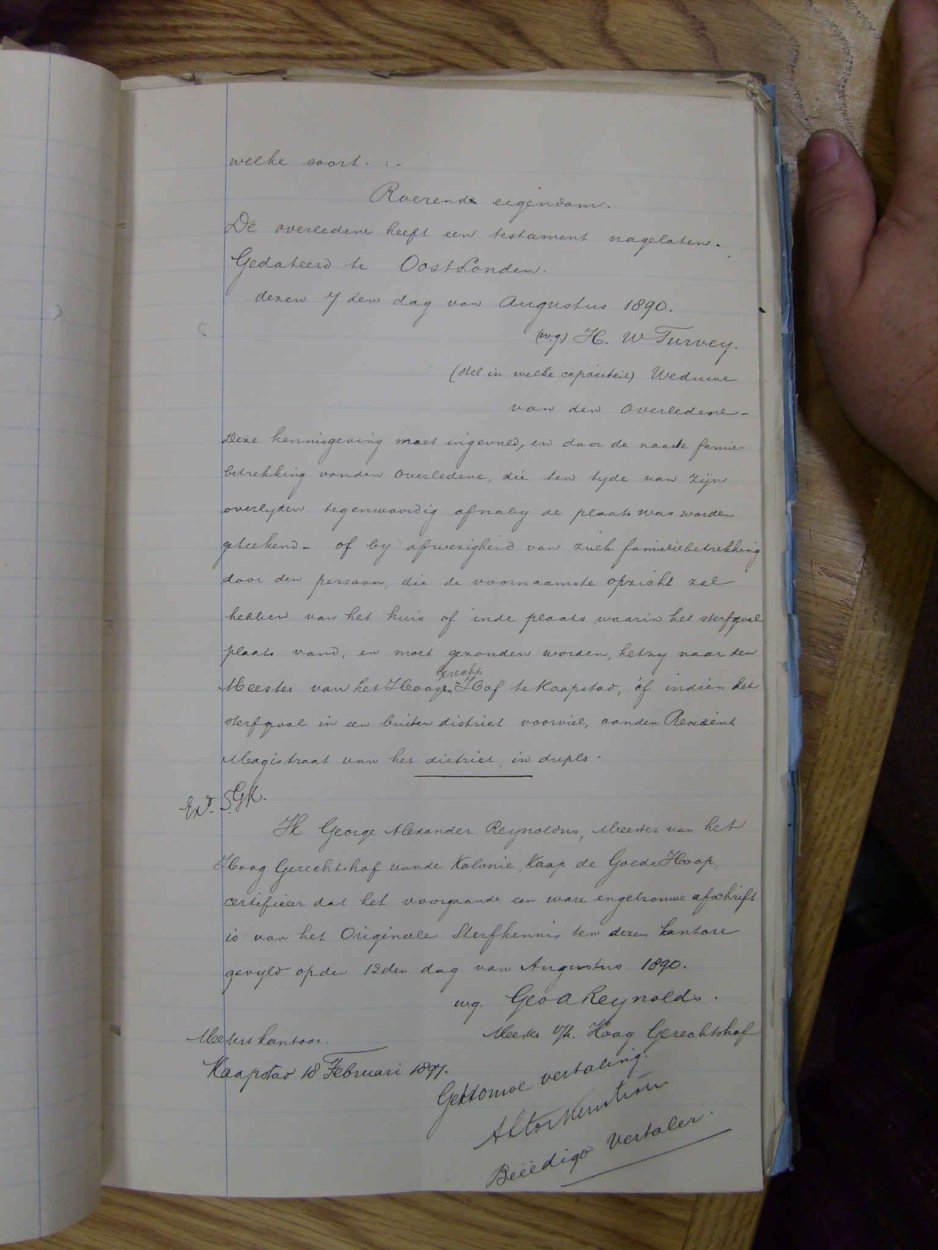 welke soort. :.
Roerende eigendom.
De overledene heeft een testament nagelaten.
Gedateerd te Oost Londen.
dezen 7 den dag van Augustus 1890.
(wg) H. W Turvey.
(stel in welke capaciteit) Weduwe
van den Overledene -
Deze kennisgeving moet ingevuld, en door de naaste famie-
betrekking vanden Overledene, die ten tyde van zyn
overlyden tegenwoordig of naby de plaats was worden
geteekend - of by afwezigheid van zulk familiebetrekking
door den persoon, die de voornaamste opzicht zal
hebben van het huis of inde plaats waarin het sterfgval
plaats vand, en moet gezonden worden, hetzy naar den
Meester van het Hoog Gerechts Hof te Kaapstad, of indien het
sterfgval in een buiten district voorviel, aanden Resident
Magistraat van het district, in duplo.
Exd. S.G.K.
Ik George Alexander Reynolds, Meester van het
Hoog Gerechtshof vande Kolonie, Kaap de Goede Hoop,
certifieer dat het voorgaande een ware engetrouwe afschrift
is van het Origineele Sterfkennis ten dezen kantore
gevyld opden 12den dag van Augustus 1890.
wg. Geo A Reynolds.
Meester v/h. Hoog Gerechtshof
Meesters kantoor.
Kaapstad 18 Februari 1897.
Getrouwe vertaling.
Beëedigd Vertaler.